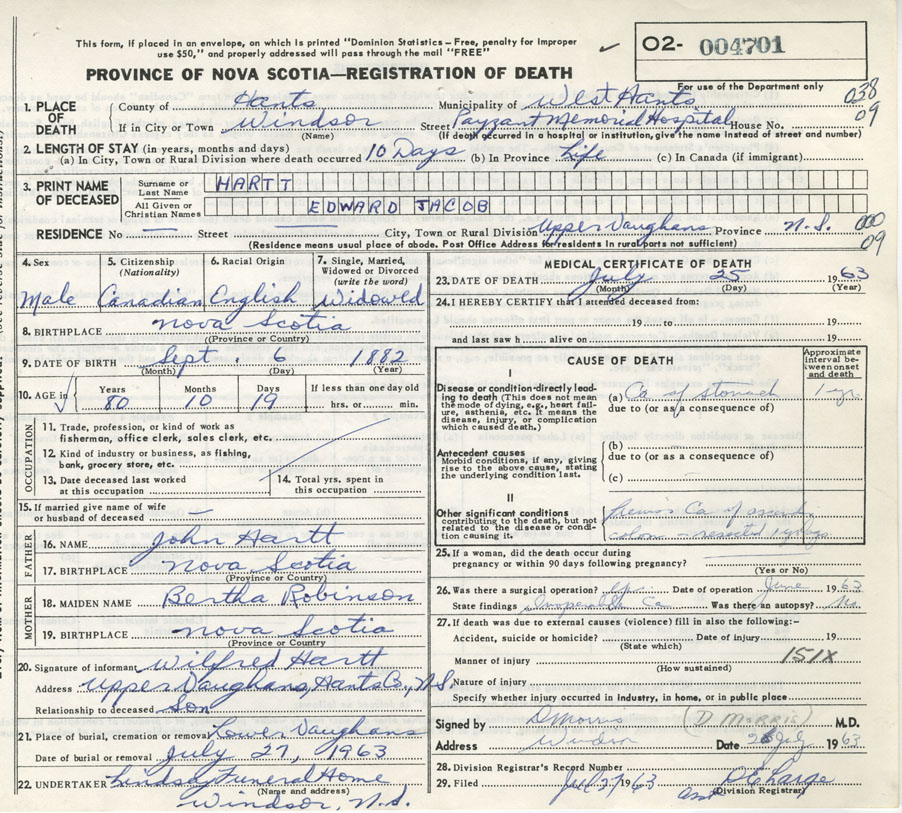 This form, if placed in an envelope, on which is printed "Dominion Statistics—Free, penalty for improper
use $50," and properly addressed will pass through the mail "FREE"
O2- 004701
PROVINCE OF NOVA SCOTIA—REGISTRATION OF DEATH
For use of the Department only
1. PLACE OF DEATH County of Hants Municipality of West Hants 038
If in City or Town Windsor Street Payzant Memorial Hospital House No. 09
(Name) (If death occurred in a hospital or institution, give the name instead of street and number)
2. LENGTH OF STAY (in years, months and days)
(a) In City, Town or Rural Division where death occurred 10 Days (b) In Province Life (c) In Canada (if immigrant)
3. PRINT NAME OF DECEASED Surname or Last Name HARTT
All Given or Christian Names EDWARD JACOB
RESIDENCE No — Street — City, Town or Rural Division Upper Vaughans Province N.S. 000
09
(Residence means usual place of abode. Post Office Address for residents in rural parts not sufficient)
4. Sex 5. Citizenship (Nationality) 6. Racial Origin 7. Single, Married, Widowed or Divorced (write the word)
Male Canadian English Widowed
8. BIRTHPLACE Nova Scotia
(Province or Country)
9. DATE OF BIRTH Sept. 6 1882
(Month) (Day) (Year)
10. AGE in Years Months Days If less than one day old
80 10 19 hrs. or min.
OCCUPATION
11. Trade, profession, or kind of work as
fisherman, office clerk, sales clerk, etc.
12. Kind of industry or business, as fishing,
bank, grocery store, etc.
13. Date deceased last worked
at this occupation
14. Total yrs. spent in
this occupation
15. If married give name of wife
or husband of deceased —
FATHER
16. NAME John Hartt
17. BIRTHPLACE Nova Scotia
(Province or Country)
MOTHER
18. MAIDEN NAME Bertha Robinson
19. BIRTHPLACE Nova Scotia
(Province or Country)
20. Signature of informant Wilfred Hartt
Address Upper Vaughans, Hants Co., N.S.
Relationship to deceased Son
21. Place of burial, cremation or removal Lower Vaughans
Date of burial or removal July 27, 1963
22. UNDERTAKER Lindsay Funeral Home
(Name and address)
Windsor, N.S.
MEDICAL CERTIFICATE OF DEATH
23. DATE OF DEATH July 25 1963
(Month) (Day) (Year)
24. I HEREBY CERTIFY that I attended deceased from:
19 to 19
and last saw h alive on 19
CAUSE OF DEATH
Approximate interval between onset and death
I
Disease or condition directly leading to death (This does not mean
the mode of dying, e.g., heart failure, asthenia, etc. It means the
disease, injury, or complication
which caused death.)
(a) Ca of stomach 1 yr.
due to (or as a consequence of)
Antecedent causes
Morbid conditions, if any, giving
rise to the above cause, stating
the underlying condition last.
(b)
due to (or as a consequence of)
(c)
II
Other significant conditions
contributing to the death, but not
related to the disease or condition causing it.
Previous Ca of
colon - resected
25. If a woman, did the death occur during
pregnancy or within 90 days following pregnancy?
(Yes or No)
26. Was there a surgical operation? Date of operation June 1963
State findings Inoperable Ca Was there an autopsy? No
27. If death was due to external causes (violence) fill in also the following:-
Accident, suicide or homicide? Date of injury 19
(State which)
Manner of injury 151X
(How sustained)
Nature of injury
Specify whether injury occurred in industry, in home, or in public place
Signed by D Morris (D MORRIS) M.D.
Address Windsor Date 26 July 1963
28. Division Registrar's Record Number
29. Filed July 27 1963
(Division Registrar)